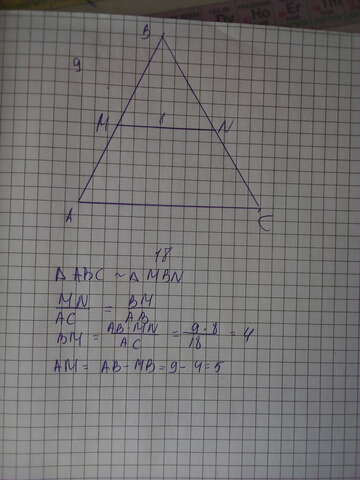 B
9
M 1 N
A C
18
Δ ABC ~ Δ MBN
MN/AC = BM/AB
BM = AB·MN/AC = 9·8/18 = 4
AM = AB - MB = 9 - 4 = 5